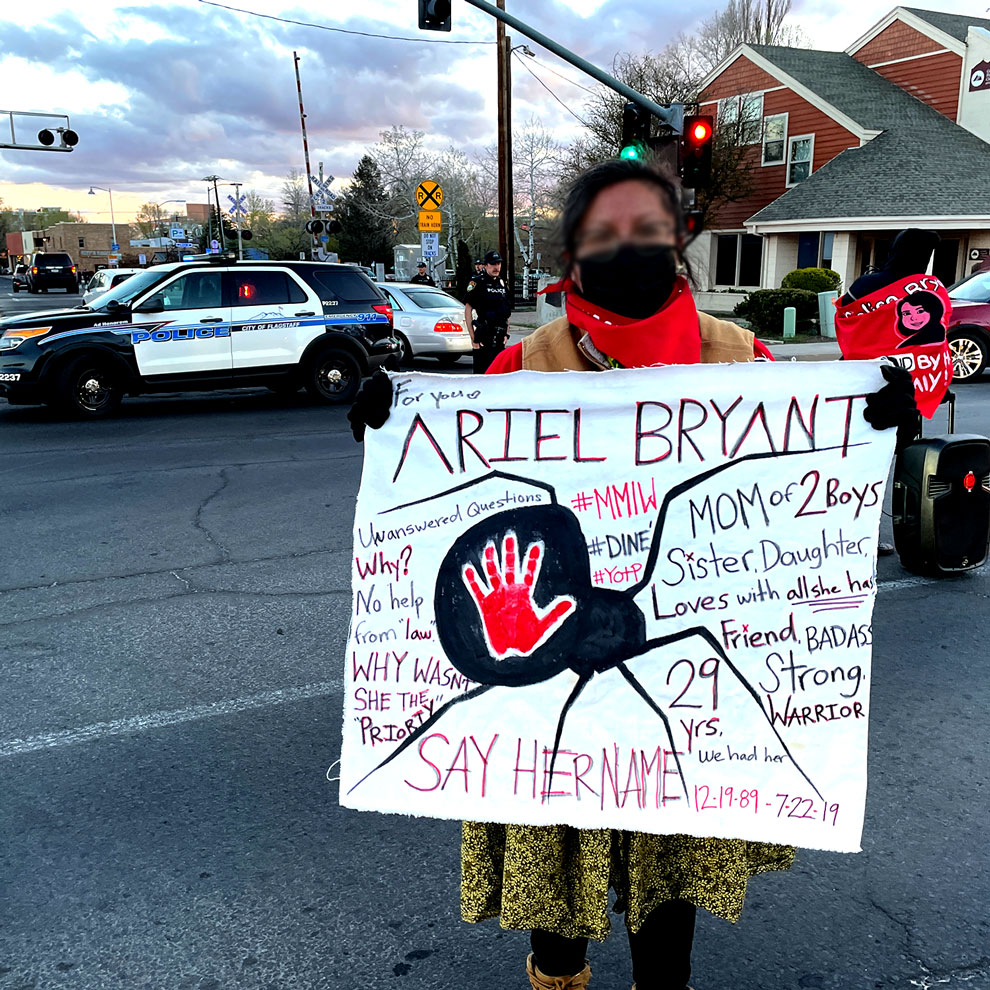 For you
ARIEL BRYANT
Unanswered Questions
Why?
No help
from "law"
WHY WASN'T
SHE THE
"PRIORITY"
#MMIW
#DINÉ
#YOTP
MOM of 2 Boys
Sister, Daughter,
Loves with all she has
Friend, BADASS
Strong,
WARRIOR
29
yrs,
we had her
SAY HER NAME
12-19-89 - 7-22-19
POLICE
CITY OF FLAGSTAFF
EMERGENCY 911
P2237
2237
POLICE
R R
NO
TRAIN HORN
DO NOT
STOP
ON
TRACKS
P
BY